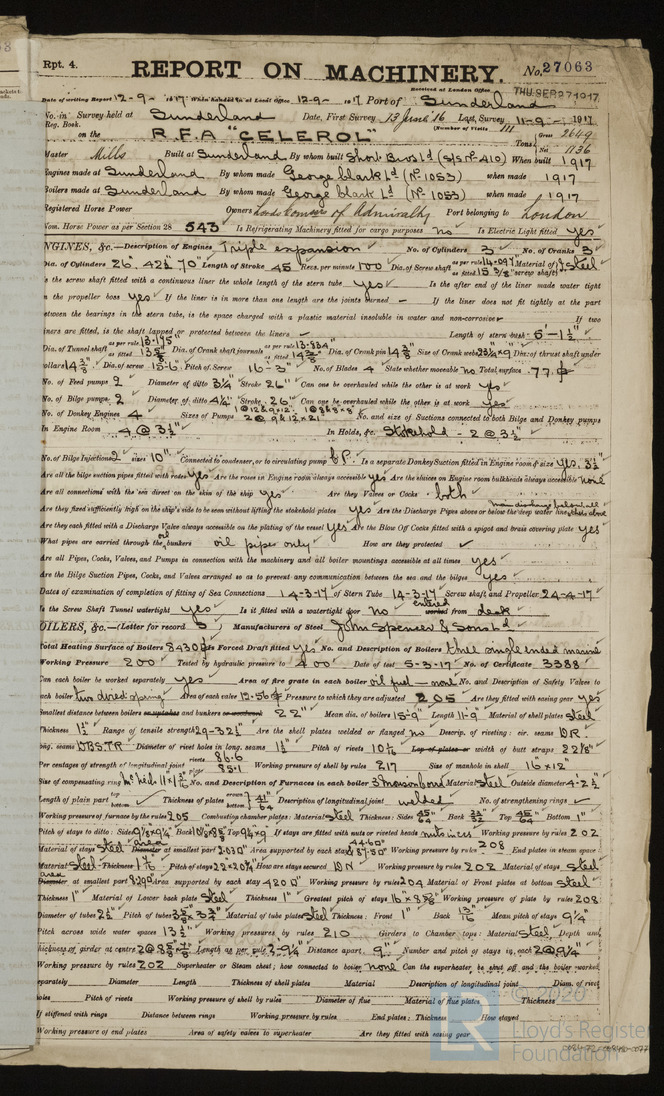 Rpt. 4.
REPORT ON MACHINERY.
No. 27063
Received at London Office THU. SEP. 27 1917
Date of writing Report 12-9- 1917 When handed in at Local Office 12-9- 1917 Port of Sunderland
No. in Reg. Book. Survey held at Sunderland Date, First Survey 13 June '16 Last Survey 11-9- 1917
(Number of Visits 111)
on the R.F.A "CELEROL" Tons Gross 2649 Net 1136
Master Mills Built at Sunderland By whom built Short Bros Ld (S/S No 410) When built 1917
Engines made at Sunderland By whom made George Clark Ld (No 1053) when made 1917
Boilers made at Sunderland By whom made George Clark Ld (No 1053) when made 1917
Registered Horse Power Owners Lords Commrs of Admiralty Port belonging to London
Nom. Horse Power as per Section 28 543 Is Refrigerating Machinery fitted for cargo purposes no Is Electric Light fitted yes
ENGINES, &c.—Description of Engines Triple expansion No. of Cylinders 3 No. of Cranks 3
Dia. of Cylinders 26" 42½" 70" Length of Stroke 45 Revs. per minute 100 Dia. of Screw shaft as per rule 14.097 as fitted 15 3/8 Material of screw shaft Steel
Is the screw shaft fitted with a continuous liner the whole length of the stern tube yes Is the after end of the liner made water tight
in the propeller boss yes If the liner is in more than one length are the joints burned — If the liner does not fit tightly at the part
between the bearings in the stern tube, is the space charged with a plastic material insoluble in water and non-corrosive If two
liners are fitted, is the shaft lapped or protected between the liners Length of stern bush 5'-1½"
Dia. of Tunnel shaft as per rule 13.175 as fitted Dia. of Crank shaft journals as per rule 13.834 as fitted Dia. of Crank pin 14 3/8 Size of Crank webs Dia. of thrust shaft under
collars 14 3/8 Dia. of screw 15-6 Pitch of Screw 16-3 No. of Blades 4 State whether moveable no Total surface 77
No. of Feed pumps 2 Diameter of ditto 3¼ Stroke 26" Can one be overhauled while the other is at work yes
No. of Bilge pumps 2 Diameter of ditto 4¼ Stroke 26" Can one be overhauled while the other is at work yes
No. of Donkey Engines 4 Sizes of Pumps No. and size of Suctions connected to both Bilge and Donkey pumps
In Engine Room 4 @ 3½" In Holds, &c. Stokehold - 2 @ 3½"
No. of Bilge Injections 2 sizes 10" Connected to condenser, or to circulating pump C.P. Is a separate Donkey Suction fitted in Engine room & size yes, 3½
Are all the bilge suction pipes fitted with roses yes Are the roses in Engine room always accessible yes Are the sluices on Engine room bulkheads always accessible none
Are all connections with the sea direct on the skin of the ship yes Are they Valves or Cocks both
Are they fixed sufficiently high on the ship's side to be seen without lifting the stokehold plates yes Are the Discharge Pipes above or below the deep water line main discharge below all others above
Are they each fitted with a Discharge Valve always accessible on the plating of the vessel yes Are the Blow Off Cocks fitted with a spigot and brass covering plate yes
What pipes are carried through the oil bunkers oil pipes only How are they protected
Are all Pipes, Cocks, Valves, and Pumps in connection with the machinery and all boiler mountings accessible at all times yes
Are the Bilge Suction Pipes, Cocks, and Valves arranged so as to prevent any communication between the sea and the bilges yes
Dates of examination of completion of fitting of Sea Connections 14-3-17 of Stern Tube 14-3-17 Screw shaft and Propeller 24-4-17
Is the Screw Shaft Tunnel watertight yes Is it fitted with a watertight door no entered from deck
BOILERS, &c.—(Letter for record S) Manufacturers of Steel John Spencer & Sons Ld
Total Heating Surface of Boilers 8430 Is Forced Draft fitted yes No. and Description of Boilers three single ended marine
Working Pressure 200 Tested by hydraulic pressure to 400 Date of test 5-3-17 No. of Certificate 3388
Can each boiler be worked separately yes Area of fire grate in each boiler oil fuel - none No. and Description of Safety Valves to
each boiler two direct spring Area of each valve 12.56 Pressure to which they are adjusted 205 Are they fitted with easing gear yes
Smallest distance between boilers or uptakes and bunkers or woodwork 22" Mean dia. of boilers 15-9" Length 11-9 Material of shell plates Steel
Thickness Range of tensile strength 29-32½ Are the shell plates welded or flanged no Descrip. of riveting: cir. seams D.R.
long. seams DBS.TR Diameter of rivet holes in long. seams Pitch of rivets 10 1/8 Lap of plates or width of butt straps 22 1/8"
Per centages of strength of longitudinal joint rivets 86.6 plate 85.1 Working pressure of shell by rules 217 Size of manhole in shell 16" x 12"
Size of compensating ring No. and Description of Furnaces in each boiler 3 Morison bond Material Steel Outside diameter 4-2½
Length of plain part top bottom Thickness of plates crown bottom 41/64 Description of longitudinal joint welded No. of strengthening rings
Working pressure of furnace by the rules 205 Combustion chamber plates: Material Steel Thickness: Sides 45/64 Back Top 45/64 Bottom 1"
Pitch of stays to ditto: Sides Back Top 9¼ x 9 If stays are fitted with nuts or riveted heads nuts in CCS Working pressure by rules 202
Material of stays Steel area at smallest part 2.030 Area supported by each stay 87.50 Working pressure by rules 208 End plates in steam space:
Material Steel Thickness Pitch of stays How are stays secured D.N Working pressure by rules 202 Material of stays Steel
area at smallest part 8.290 Area supported by each stay 420 Working pressure by rules 204 Material of Front plates at bottom Steel
Thickness 1" Material of Lower back plate Steel Thickness 1" Greatest pitch of stays Working pressure of plate by rules 208
Diameter of tubes 2½ Pitch of tubes Material of tube plates Steel Thickness: Front 1" Back 13/16 Mean pitch of stays 9¼
Pitch across wide water spaces 13½ Working pressures by rules 210 Girders to Chamber tops: Material Steel Depth and
thickness of girder at centre Length as per rule 2-9¼ Distance apart 9" Number and pitch of stays in each 2 @ 9¼
Working pressure by rules 202 Superheater or Steam chest; how connected to boiler none Can the superheater be shut off and the boiler worked
separately Diameter Length Thickness of shell plates Material Description of longitudinal joint Diam. of rivet
holes Pitch of rivets Working pressure of shell by rules Diameter of flue Material of flue plates Thickness
If stiffened with rings Distance between rings Working pressure by rules End plates: Thickness How stayed
Working pressure of end plates Area of safety valves to superheater Are they fitted with easing gear
© 2020
Lloyd's Register
Foundation